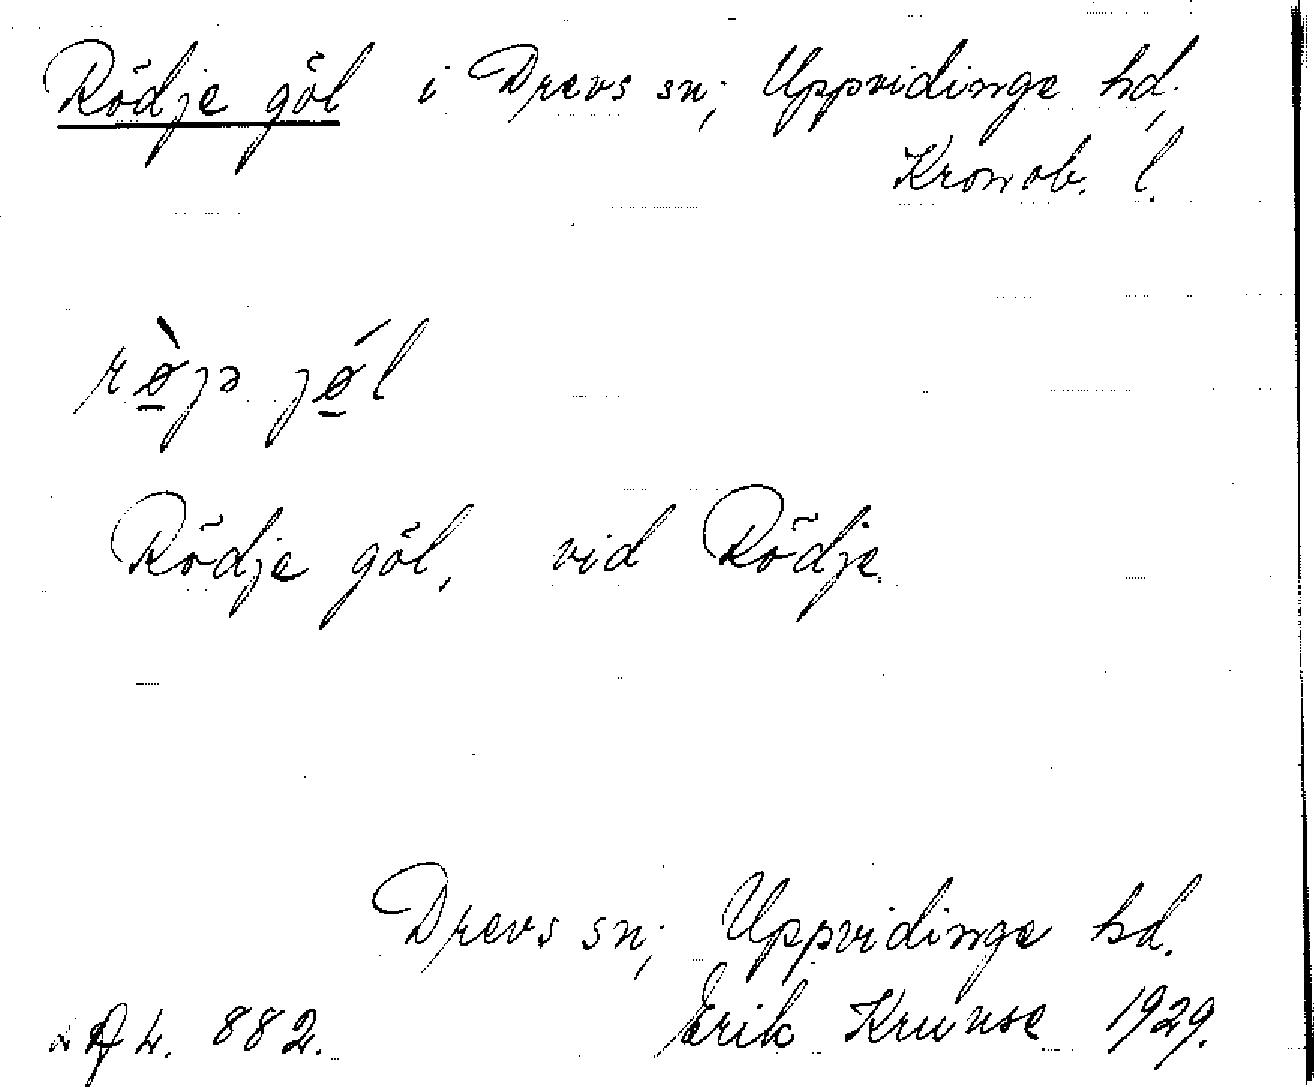 Rödje göl i Drevs sn; Uppvidinge hd.
Kronob. l.
rø̱̀jə jǿ̱l
Rödje göl, vid Rödje.
Drevs sn; Uppvidinge hd.
Erik Kruuse 1929.
882.